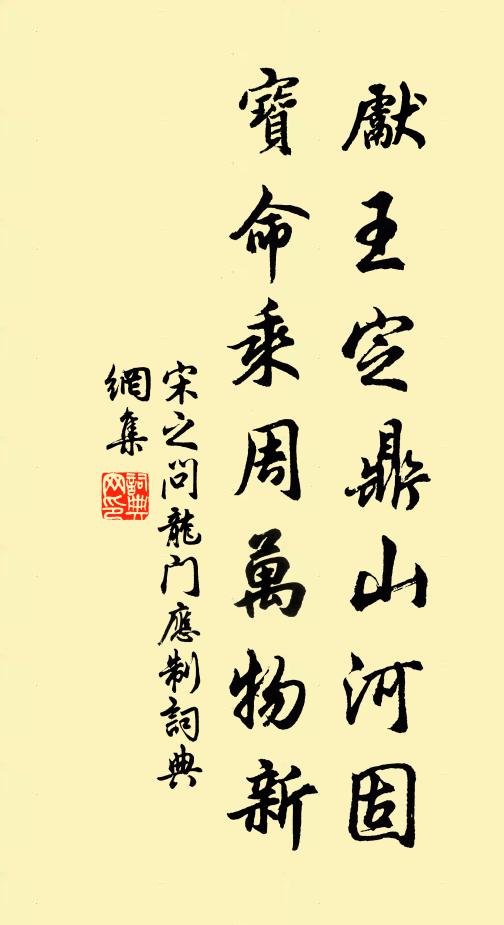 獻王定鼎山河固
寶命乘周萬物新
宋之問龍门應制詞典
網集
詞典
网印